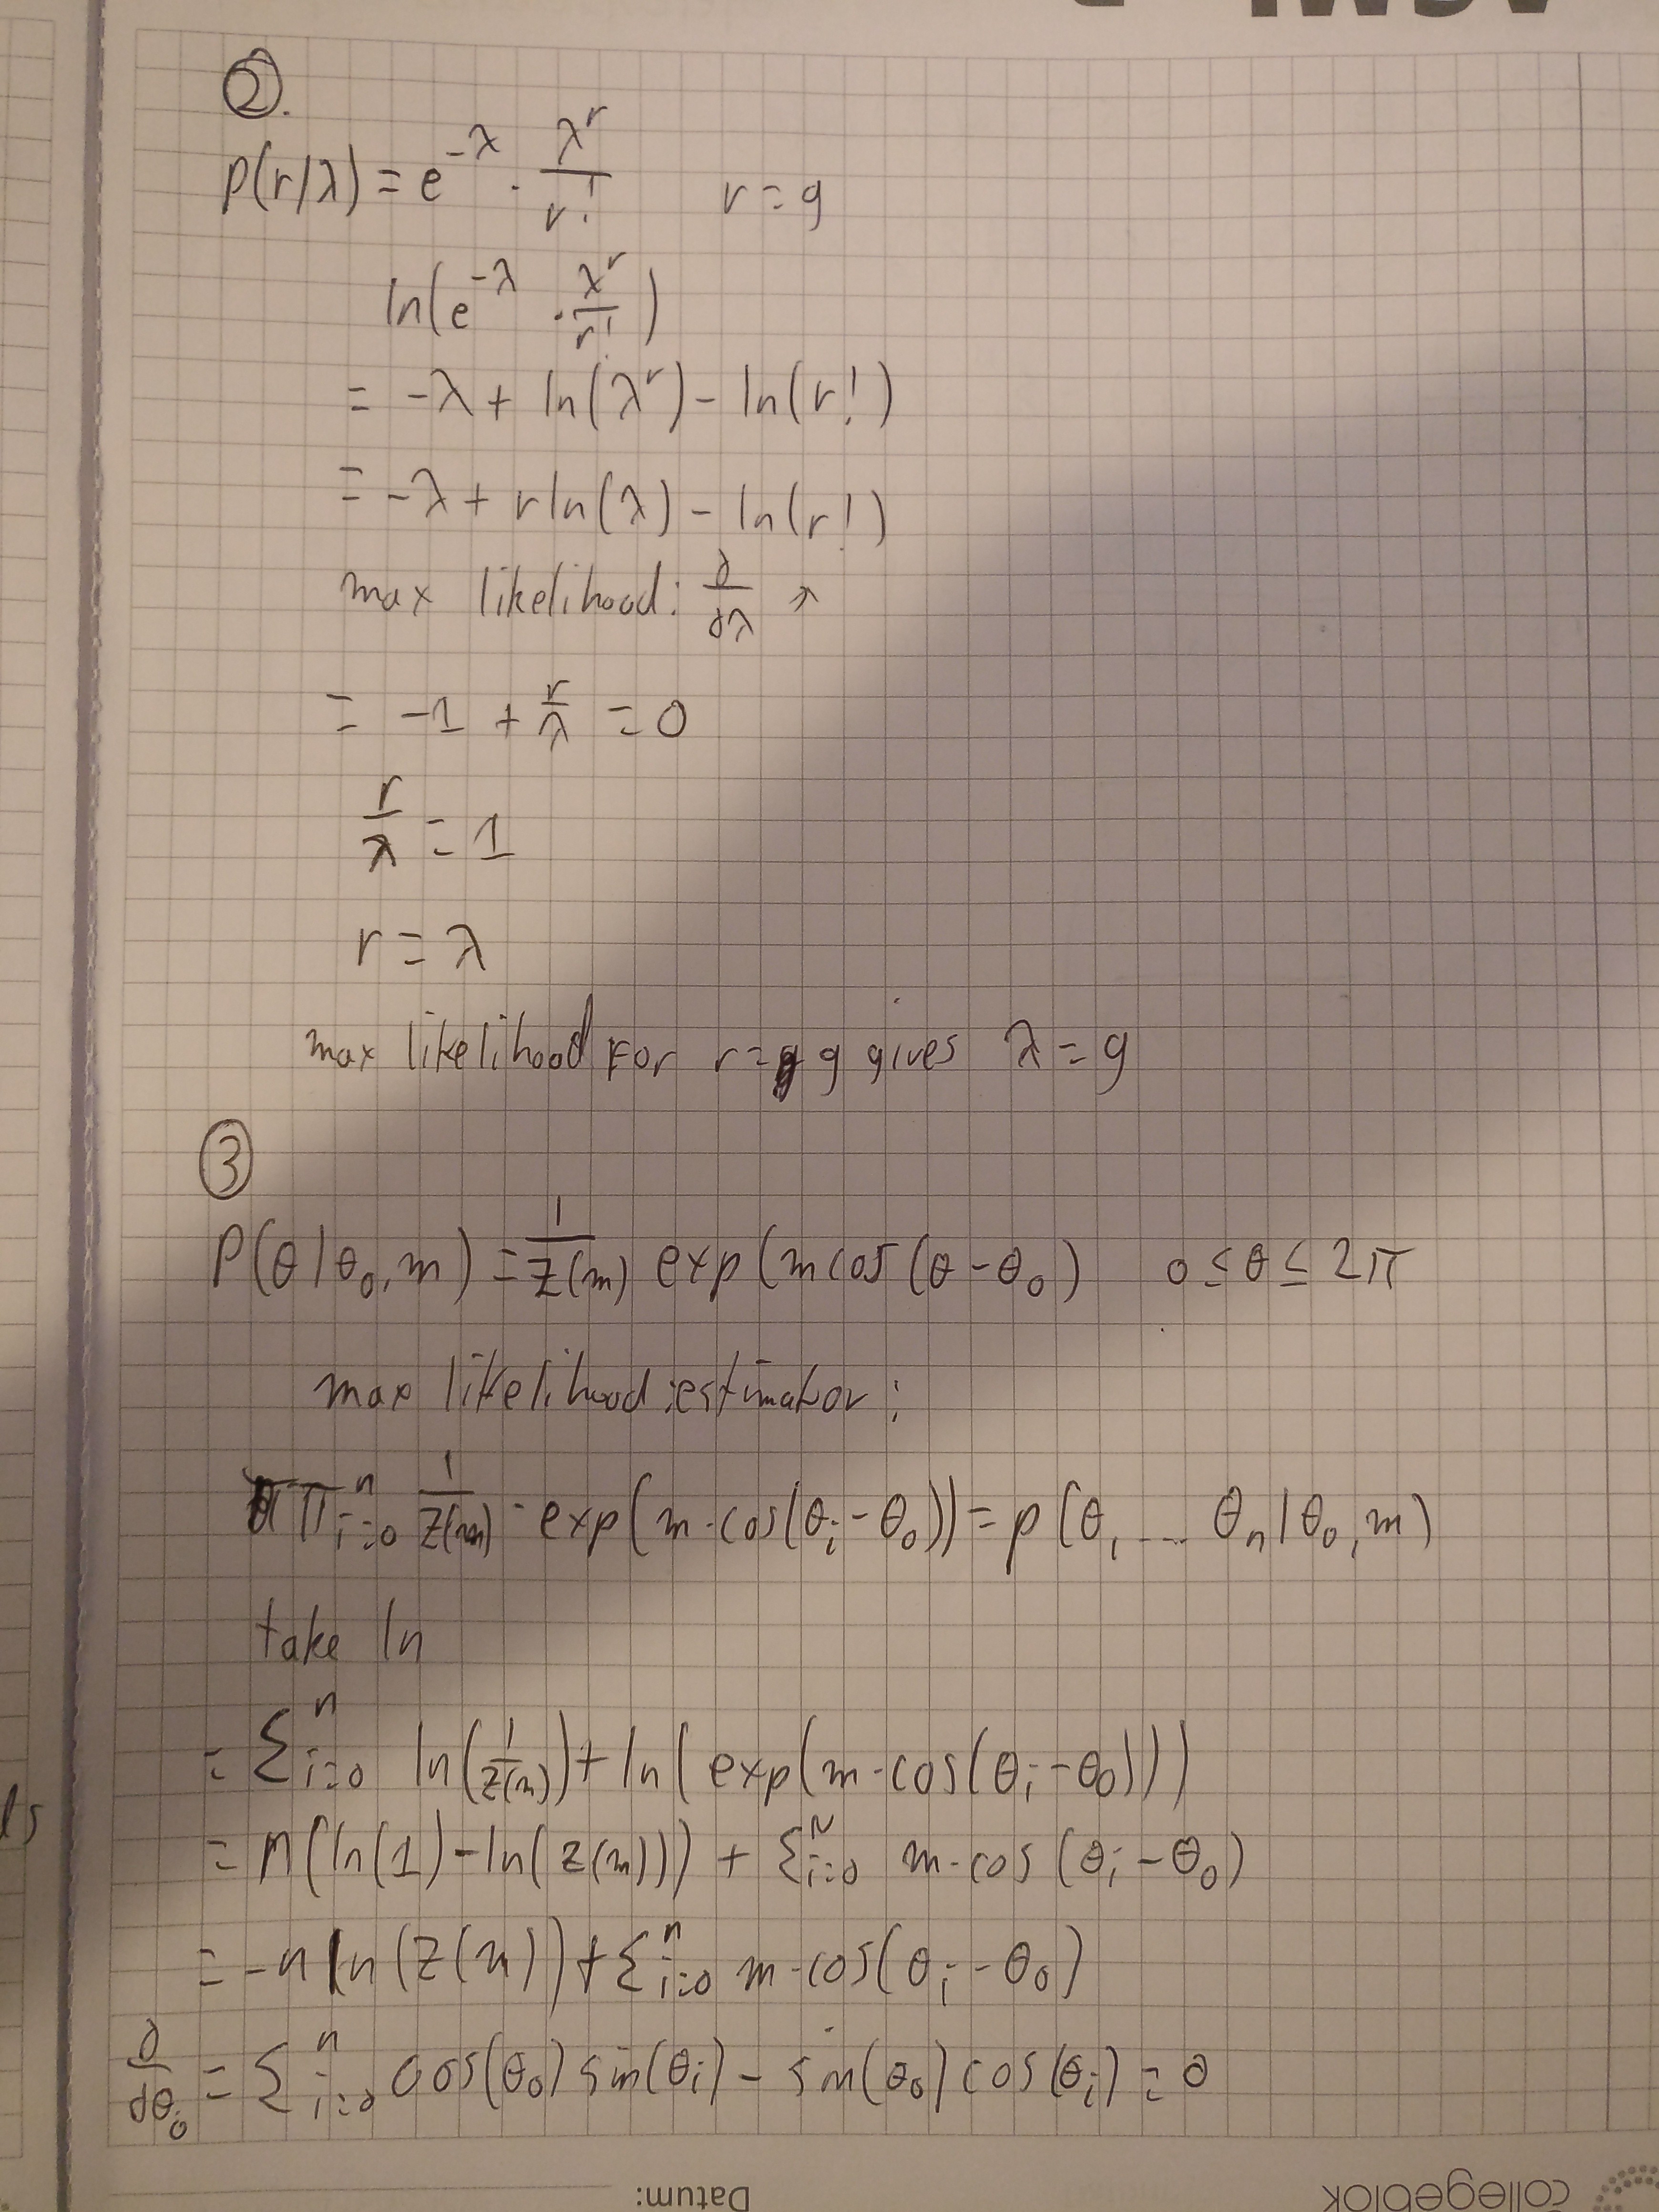 ②.
p(r|λ) = e^{-λ} · \frac{λ^r}{r!}    r = 9
ln(e^{-λ} · \frac{λ^r}{r!})
= -λ + ln(λ^r) - ln(r!)
= -λ + r ln(λ) - ln(r!)
max likelihood: \frac{∂}{∂λ} ↗
= -1 + \frac{r}{λ} = 0
\frac{r}{λ} = 1
r = λ
max likelihood for r = 9 gives λ = 9
③
P(θ|θ_0, m) = \frac{1}{Z(m)} exp(m cos(θ - θ_0)    0 ≤ θ ≤ 2π
max likelihood estimator:
Π_{i=0}^n \frac{1}{Z(m)} · exp(m · cos(θ_i - θ_0)) = p(θ_1 ... θ_n | θ_0, m)
take ln
= Σ_{i=0}^n ln(\frac{1}{Z(m)}) + ln(exp(m · cos(θ_i - θ_0)))
= n(ln(1) - ln(Z(m))) + Σ_{i=0}^N m · cos(θ_i - θ_0)
ls
= -n ln(Z(m)) + Σ_{i=0}^n m · cos(θ_i - θ_0)
\frac{∂}{∂θ_0} = Σ_{i=0}^n cos(θ_0) sin(θ_i) - sin(θ_0) cos(θ_i) = 0
Datum:
collegeblok